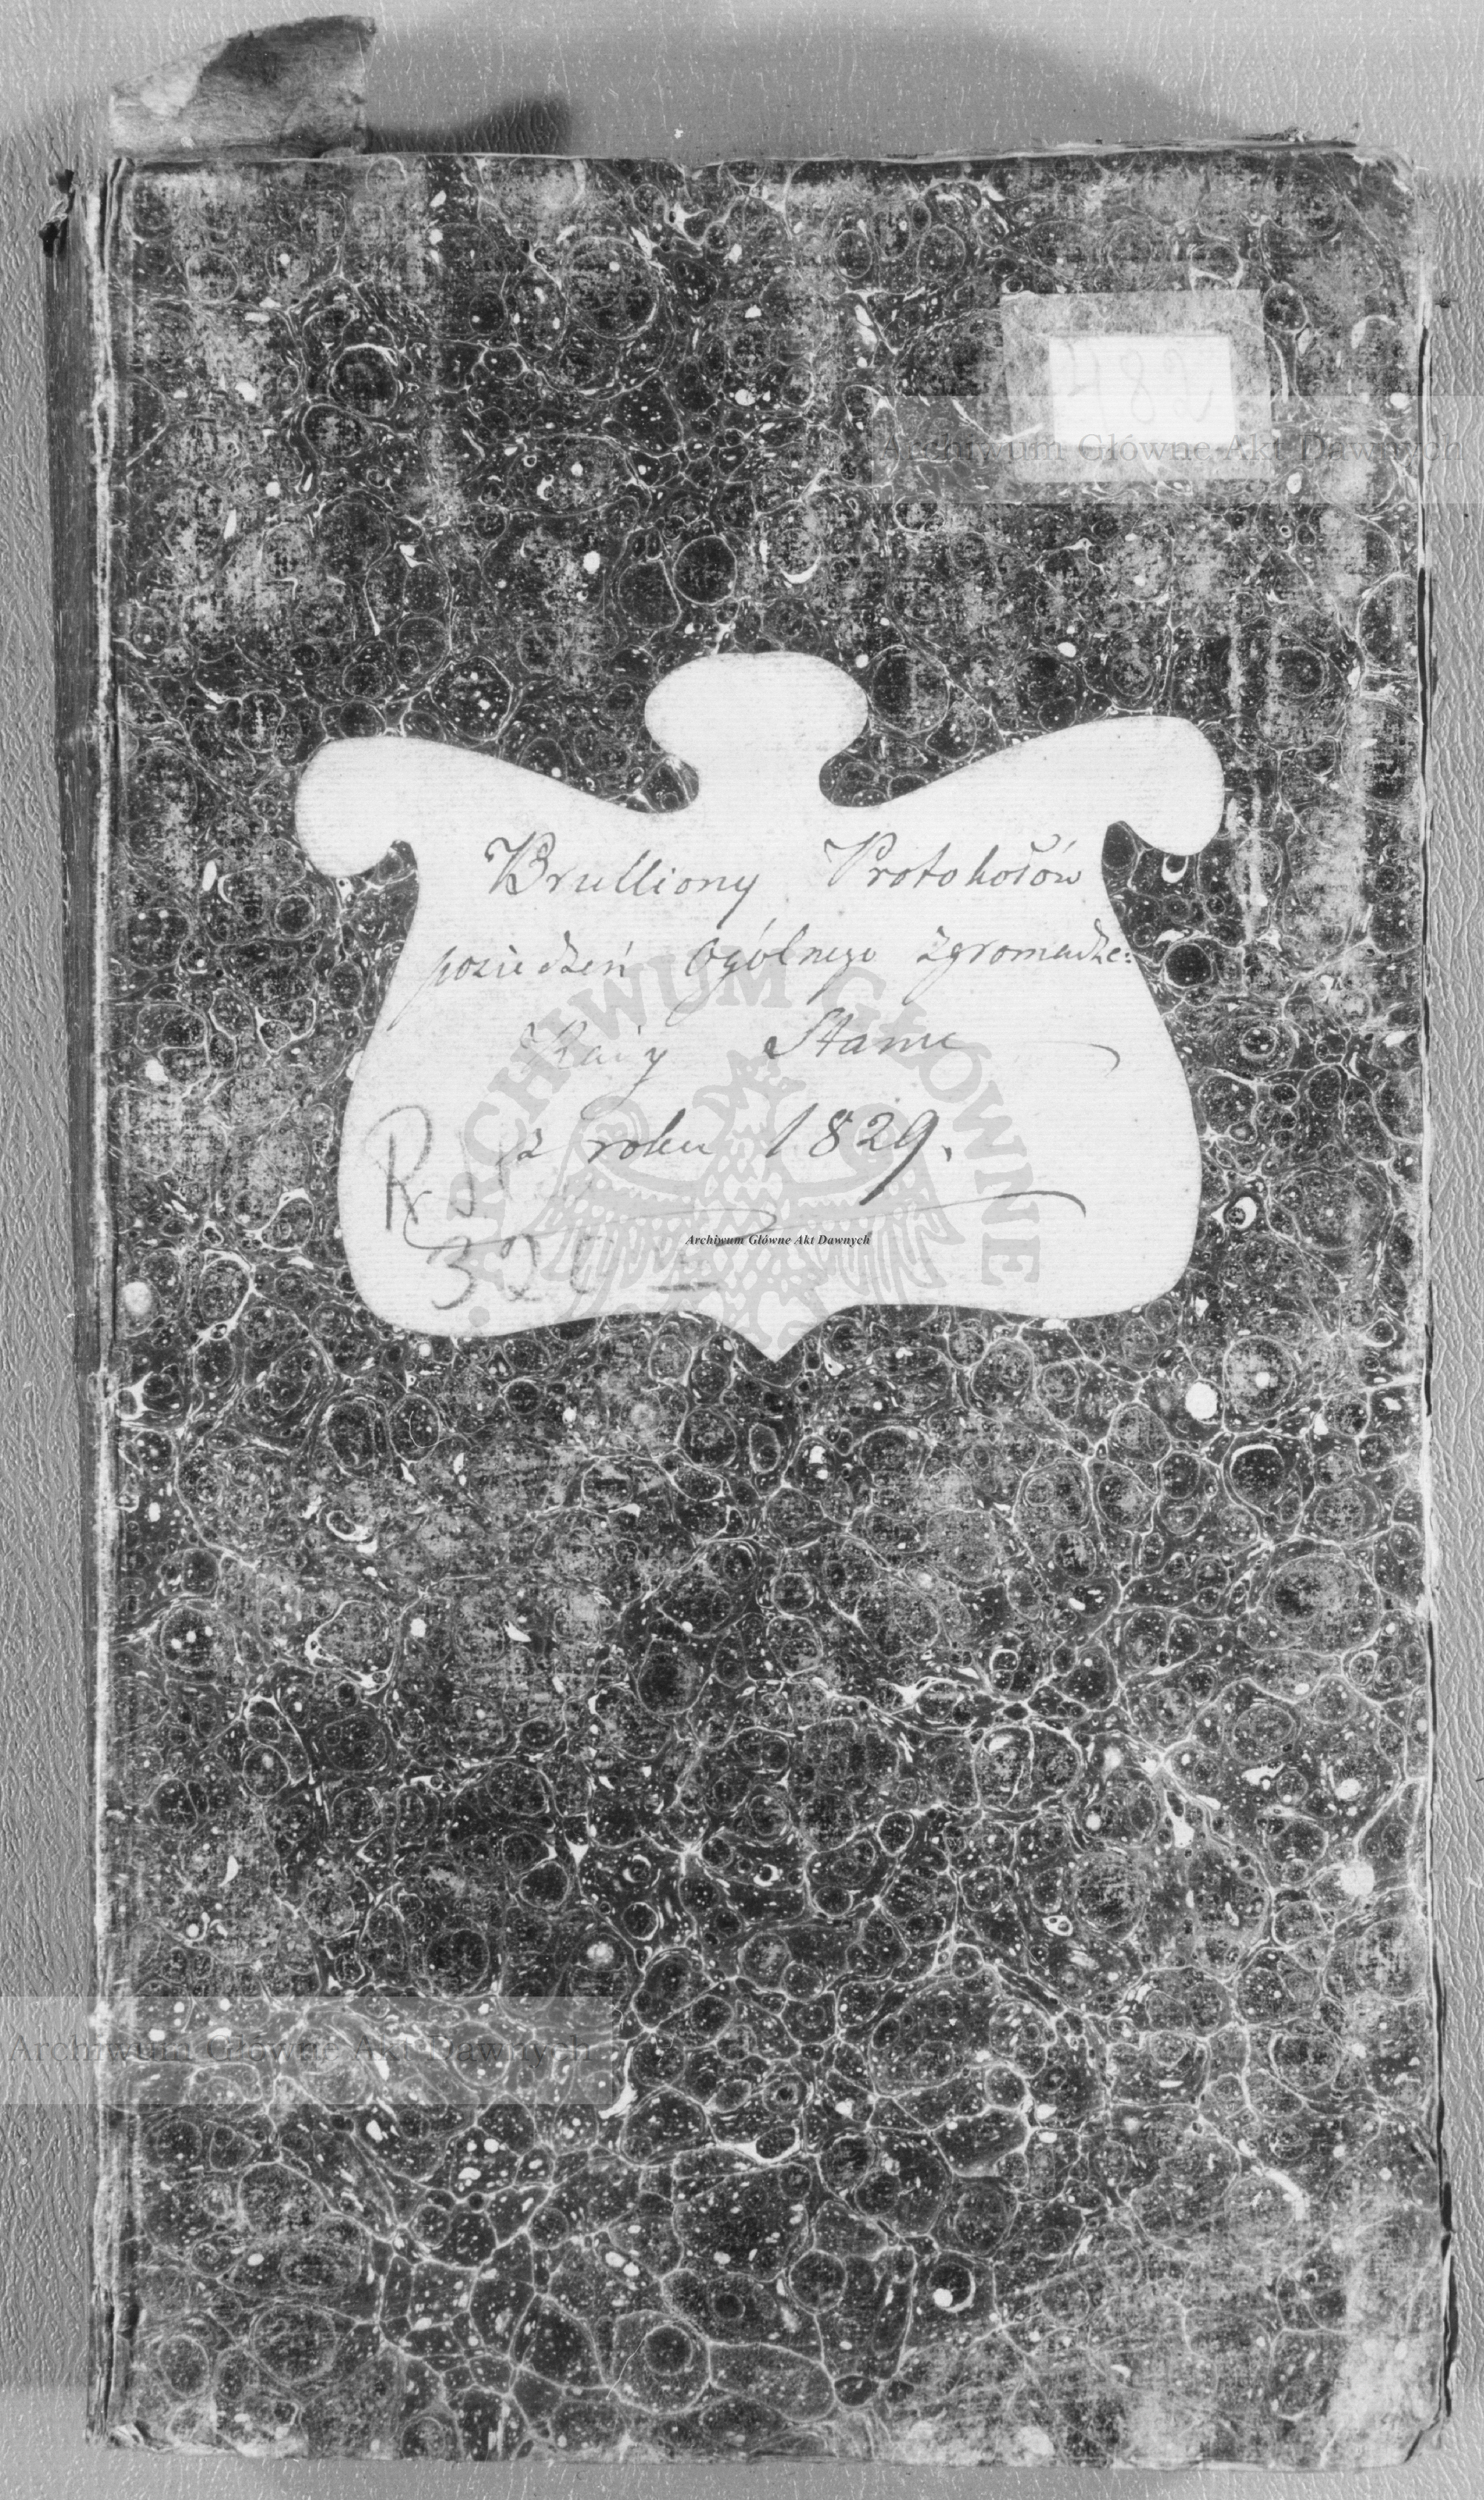 Archiwum Główne Akt Dawnych
Brulliony Protokołów
posiedzeń Ogólnego Zgromadze:
Rady Stanu
z roku 1829.
R
ARCHIWUM GŁÓWNE
Archiwum Główne Akt Dawnych
Archiwum Główne Akt Dawnych